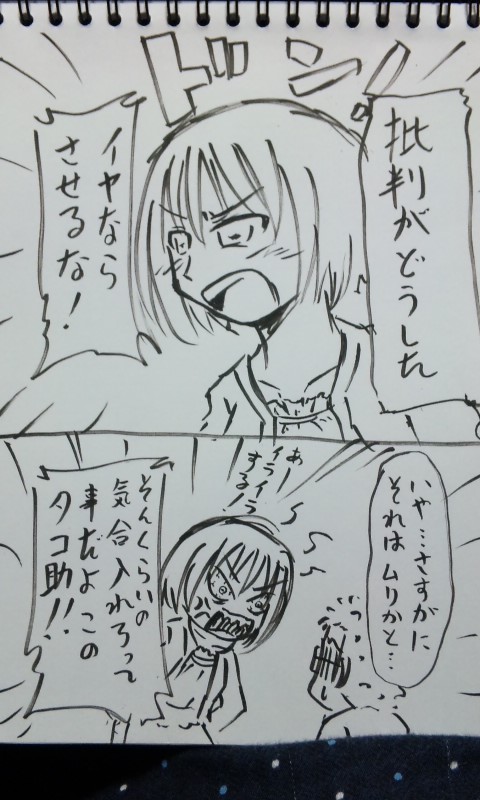 ドン
批判がどうした
イヤなら
させるな！
いや…さすがに
それはムリかと…
あー
イライラ
する！
そんくらいの
気合入れろって
事だよこの
タコ助！！